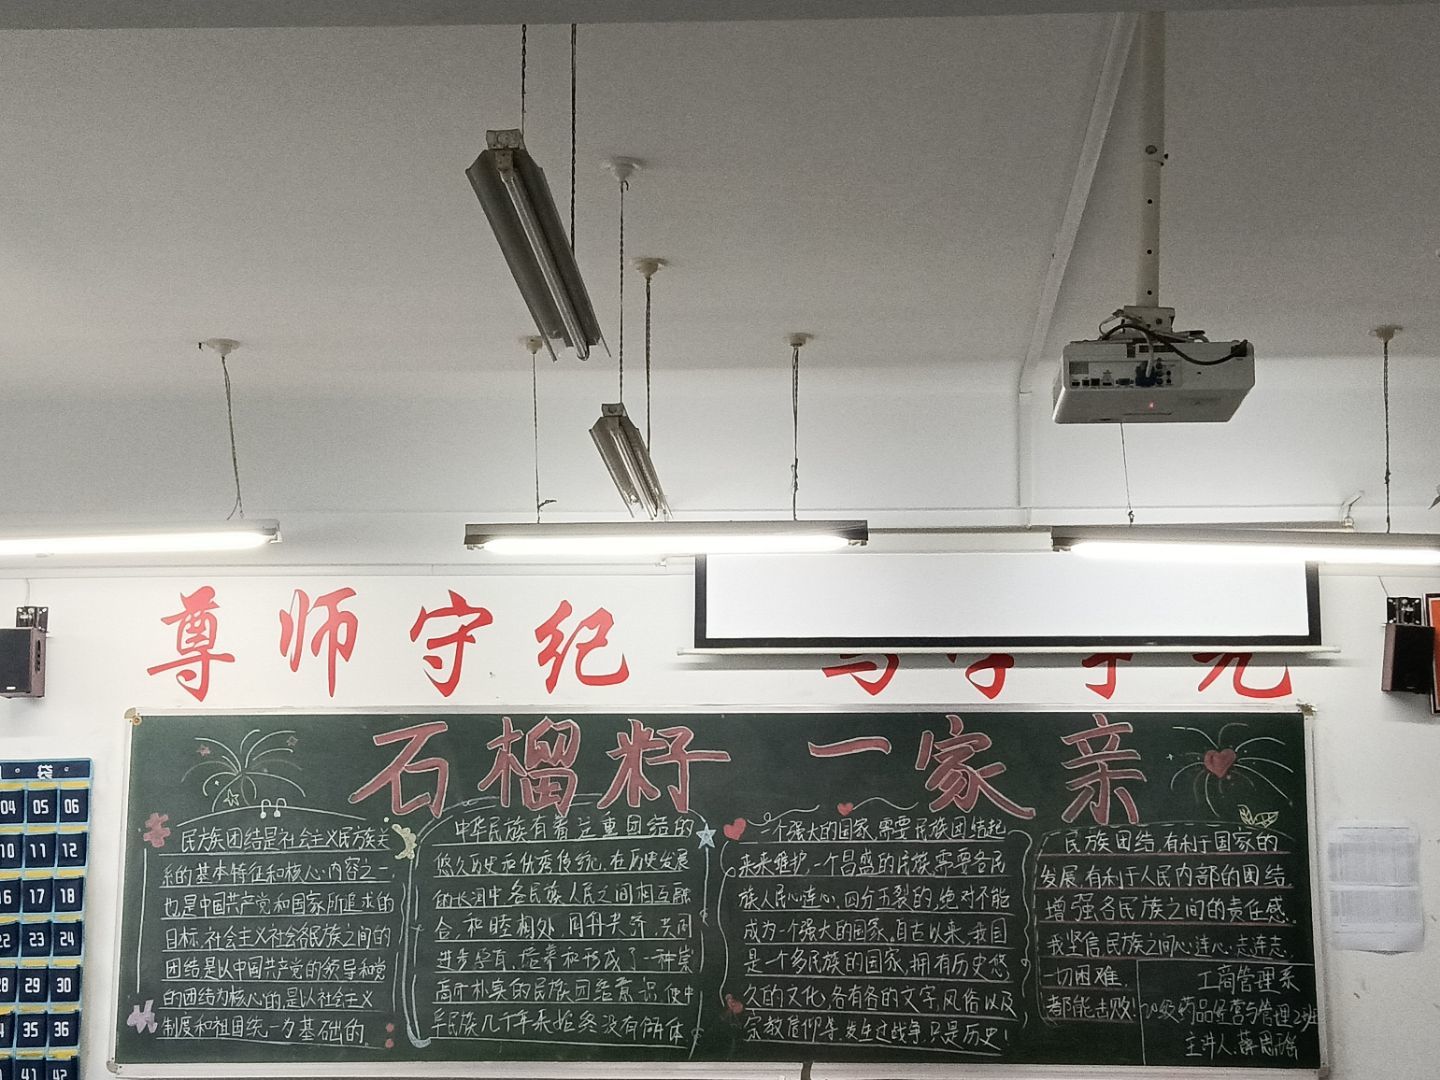 尊师守纪
石榴籽 一家亲
民族团结是社会主义民族关
系的基本特征和核心内容之一,
也是中国共产党和国家所追求的
目标,社会主义社会各民族之间的
团结是以中国共产党的领导和党
的团结为核心的,是以社会主义
制度和祖国统一为基础的。
中华民族有着注重团结的
悠久历史和优秀传统,在历史发展
的长河中,各民族人民之间相互融
合,和睦相处,同舟共济,共同
进步孕育、培养和形成了一种崇
高而朴实的民族团结意识,使中
华民族几千年来始终没有解体
一个强大的国家,需要民族团结起
来来维护,一个昌盛的民族,需要各民
族人民心连心,四分五裂的,绝对不能
成为一个强大的国家。自古以来,我国
是一个多民族的国家,拥有历史悠
久的文化,各有各的文字,风俗以及
宗教信仰等,发生过战争,只是历史!
民族团结,有利于国家的
发展,有利于人民内部的团结,
增强各民族之间的责任感。
我坚信,民族之间心连心,志连志,
一切困难,
都能击败!
工商管理系
20级药品经营与管理2班
主讲人:蒋恩瑶
袋
04 05 06
10 11 12
16 17 18
22 23 24
28 29 30
34 35 36
40 41 42